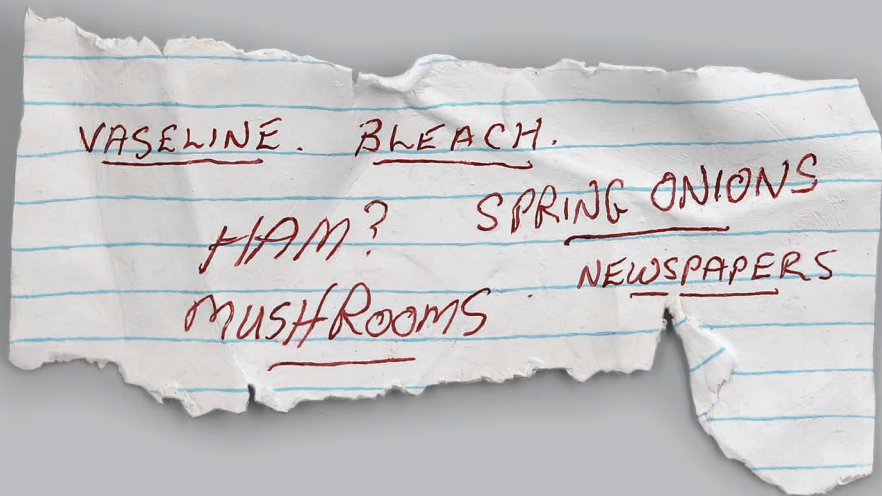 VASELINE. BLEACH.
HAM? SPRING ONIONS
MUSHROOMS NEWSPAPERS